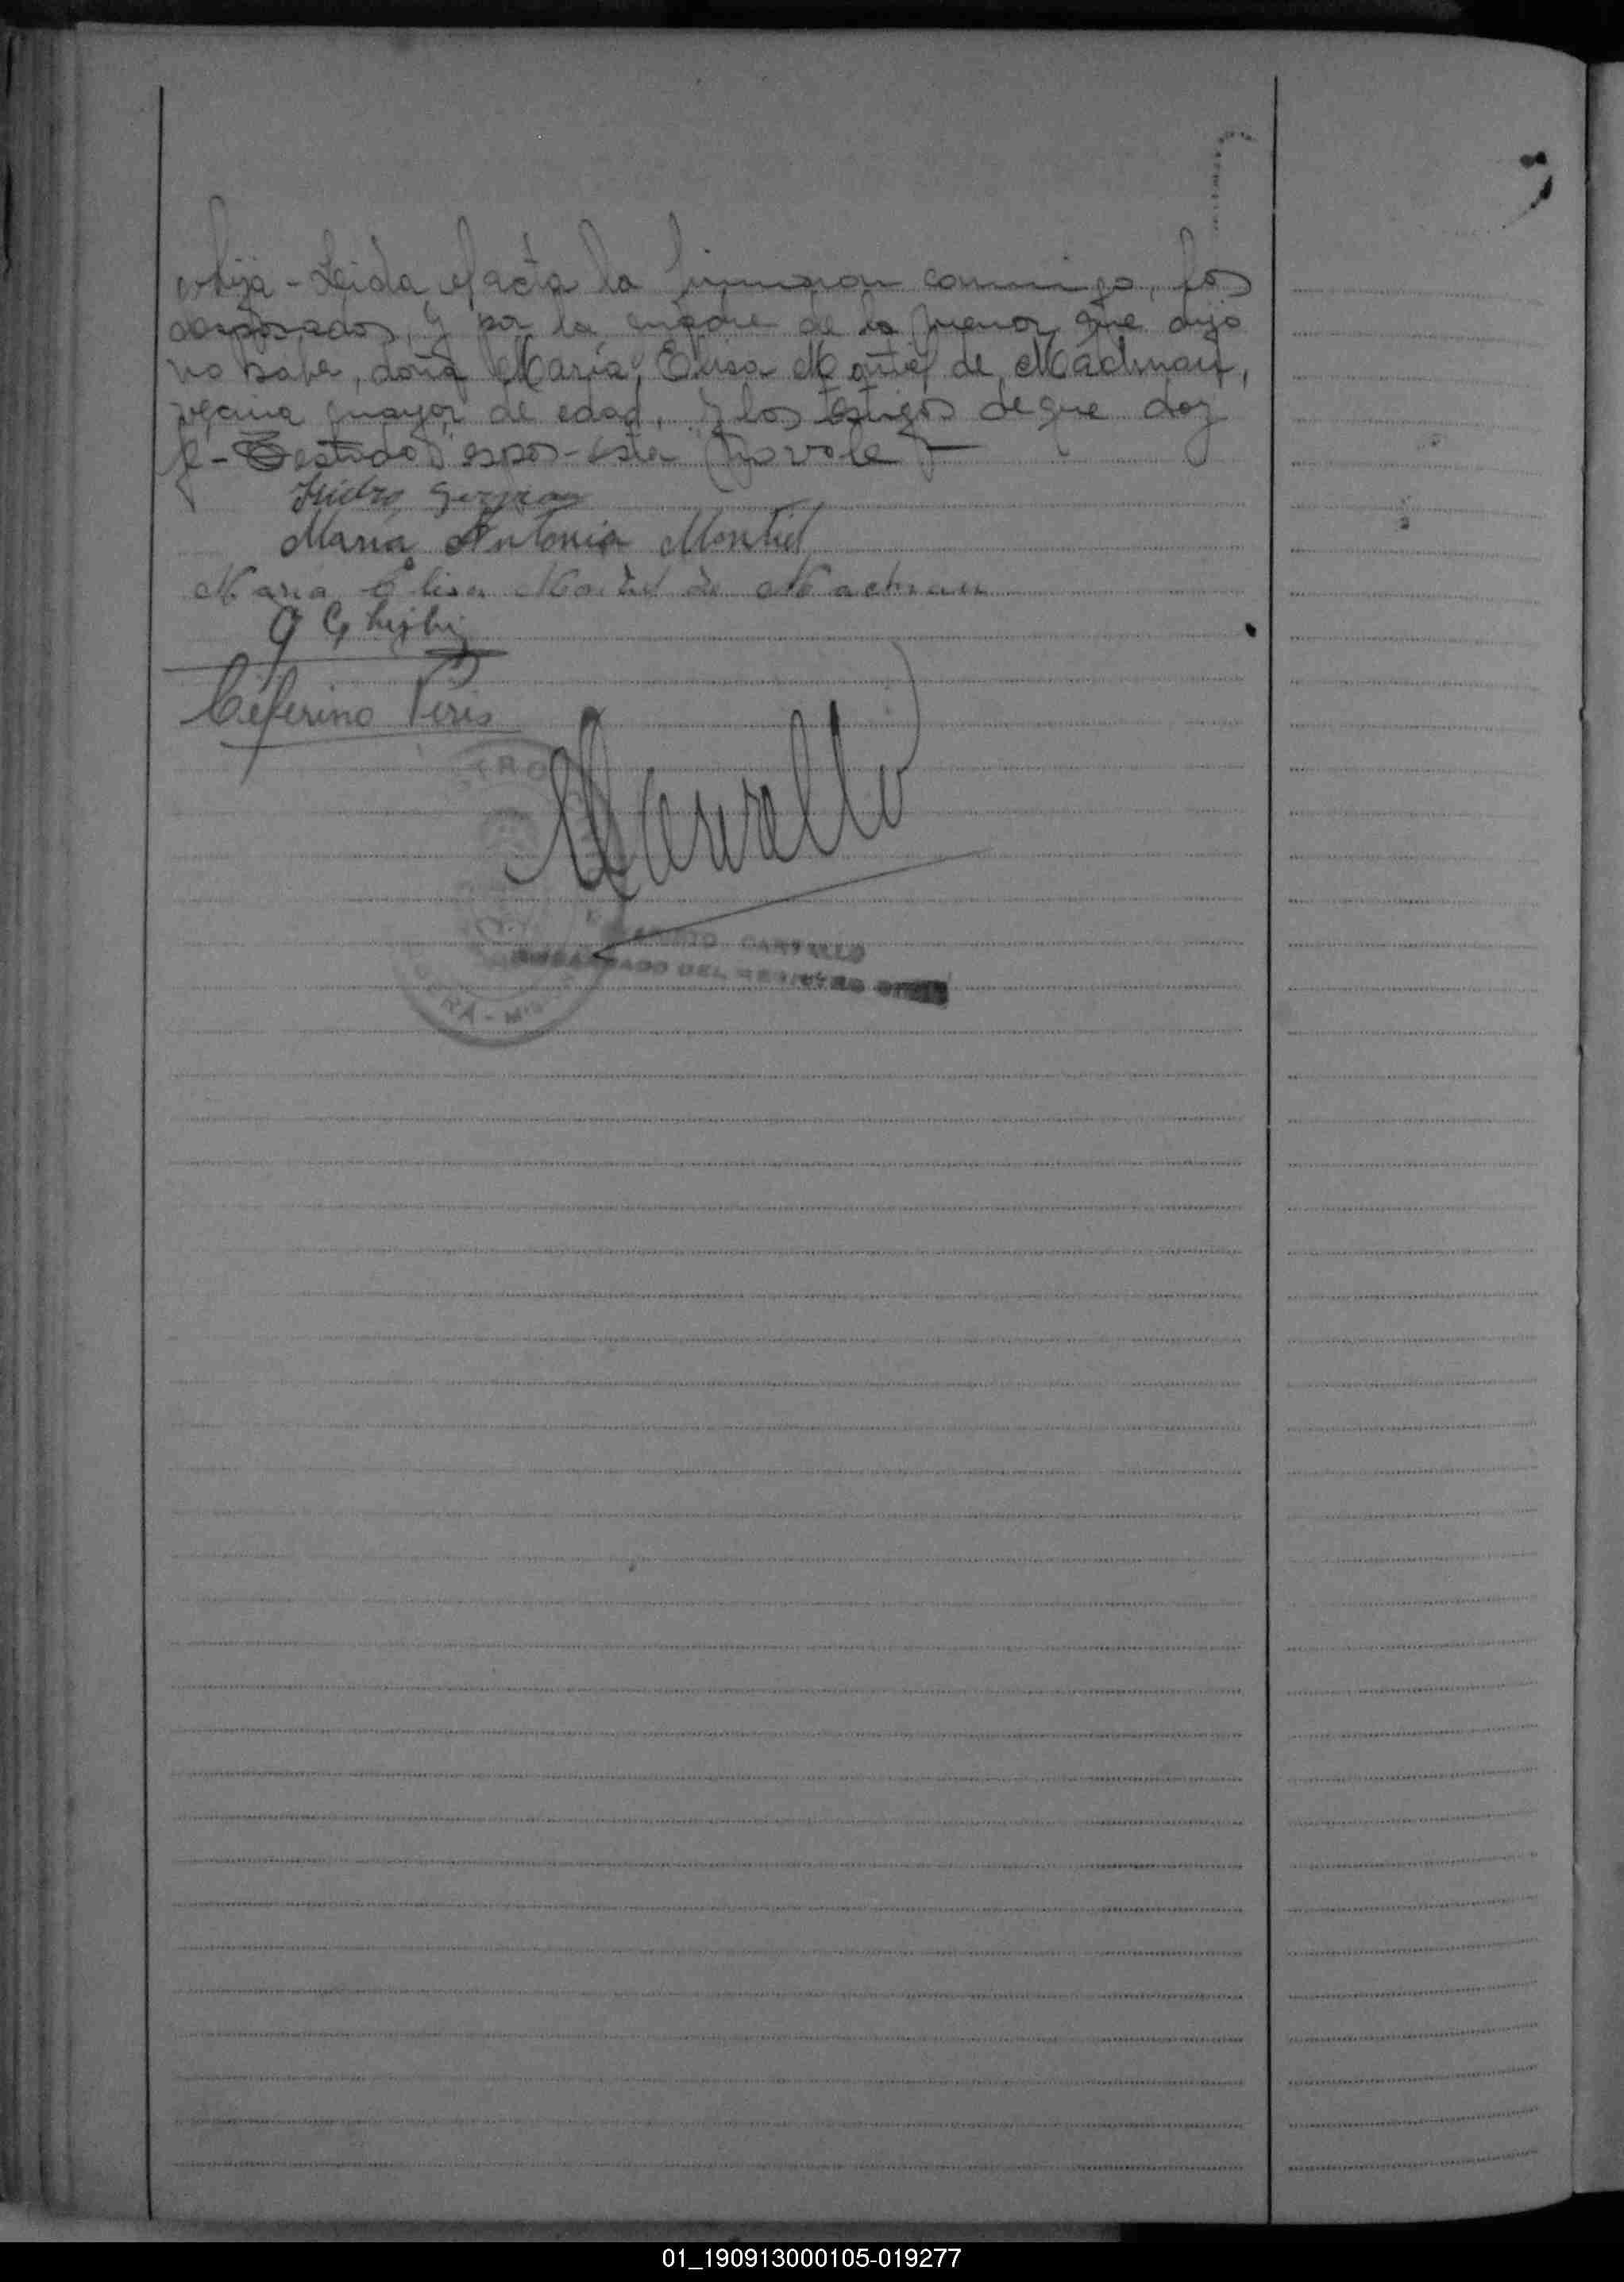 hija - Leida el acta la firmaron conmigo, los
desposados, y por la madre de la menor, que dijo
no saber, doña María Elisa Montiel de Machnau,
vecina mayor de edad, y los testigos de que doy
fe - Testado "espos - esta" no vale
Isidro
María Antonia Montiel
Maria Elisa Montiel de Machnau
Ceferino Piris
CARVALLO
ENCARGADO DEL REGISTRO CIVIL
01_190913000105-019277